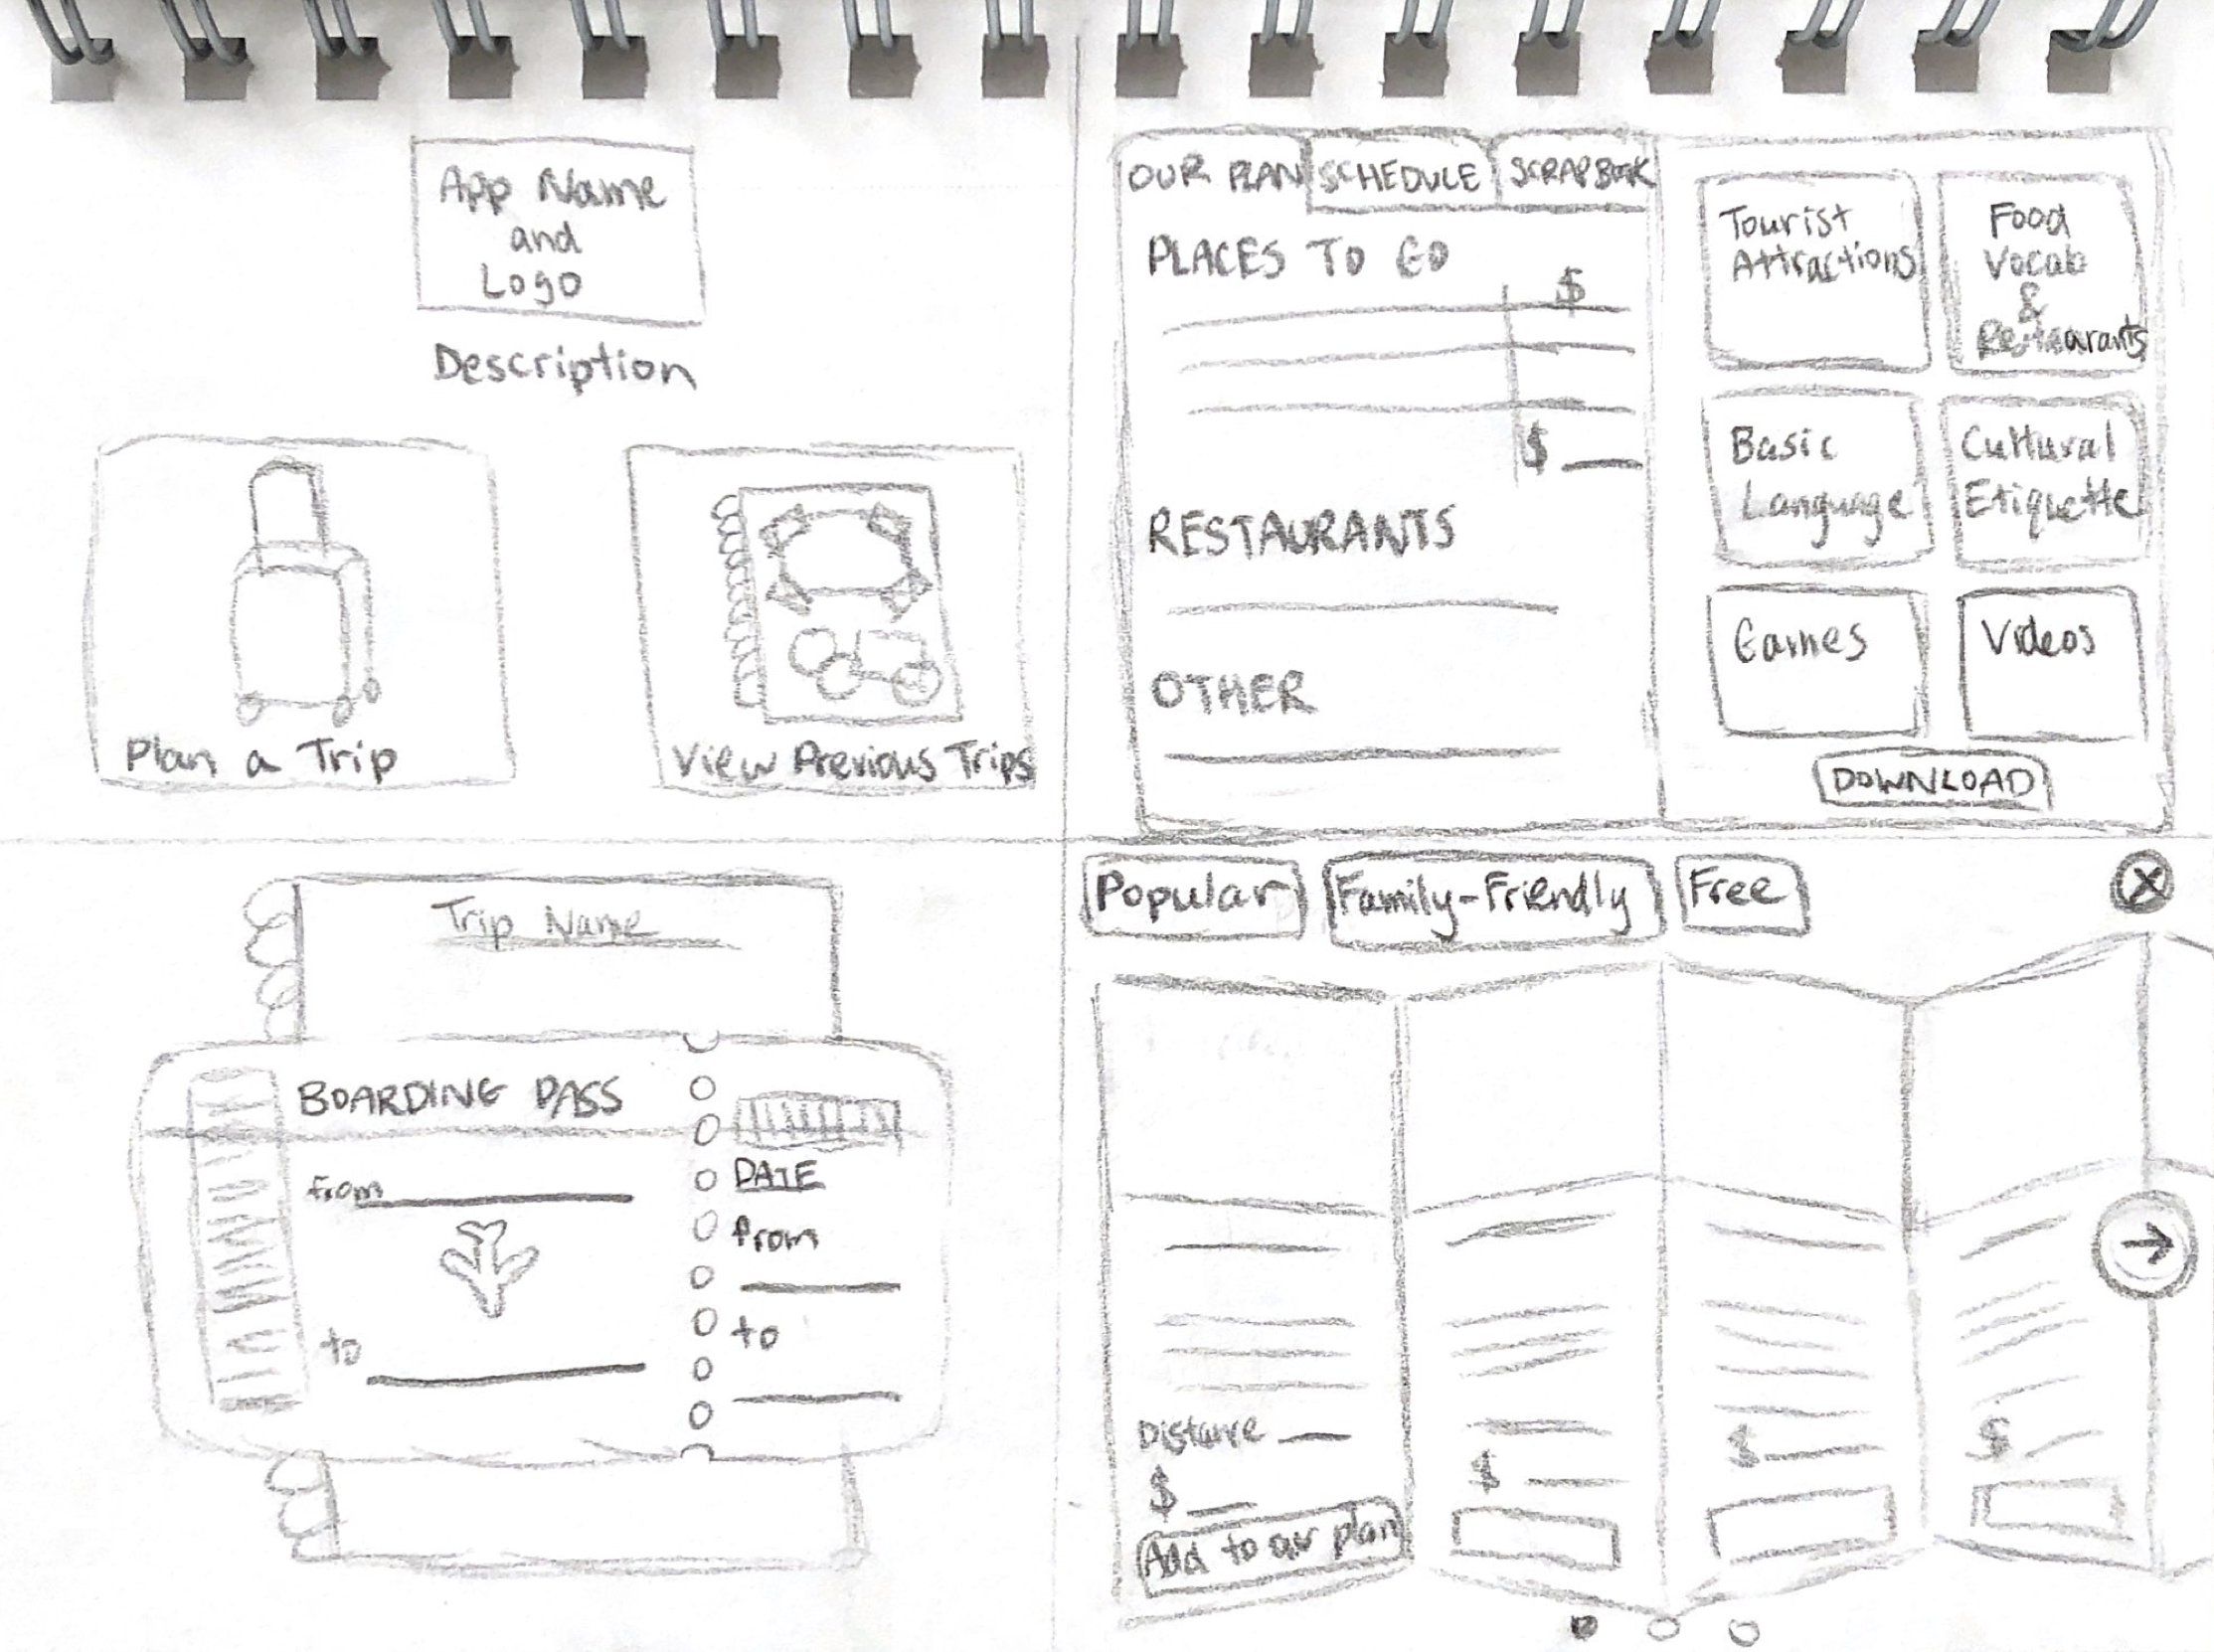 App Name
and
Logo
Description
Plan a Trip
View Previous Trips
OUR PLAN
SCHEDULE
SCRAPBOOK
PLACES TO GO
$
$
RESTAURANTS
OTHER
Tourist
Attractions
Food
Vocab
&
Restaurants
Basic
Language
Cultural
Etiquette
Games
Videos
DOWNLOAD
Trip Name
BOARDING PASS
from
to
DATE
from
to
Popular
Family-Friendly
Free
X
Distance
$
Add to our plan
$
$
$